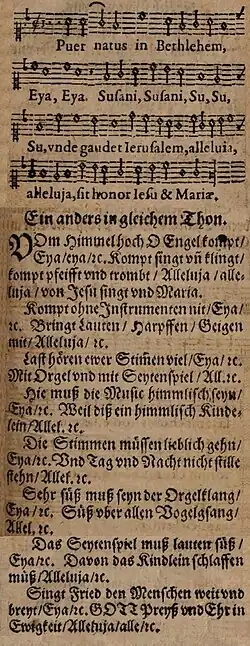 Puer natus in Bethlehem,
Eya, Eya. Susani, Susani, Su, Su,
Su, vnde gaudet Ierusalem, alleluia,
alleluja, sit honor Iesu & Mariæ.
Ein anders in gleichem Thon.
VOm Himmel hoch O Engel kompt/
Eya/eya/ꝛc. Kompt singt vñ klingt/
kompt pfeifft vnd trombt/ Alleluja / alle-
luja / von Jesu singt vnd Maria.
Kompt ohne Instrumenten nit/Eya/
ꝛc. Bringt Lauten/ Harpffen/ Geigen
mit/Alleluja/ ꝛc.
Last hören ewer Stim̃en viel/Eya/ꝛc.
Mit Orgel vnd mit Seytenspiel/ All.ꝛc.
Hie muß die Music himmlisch seyn/
Eya/ꝛc. Weil diß ein himmlisch Kinde-
lein/Allel. ꝛc.
Die Stimmen müssen lieblich gehn/
Eya/ꝛc. Vnd Tag vnd Nacht nicht stille
stehn/ Allel. ꝛc.
Sehr süß muß seyn der Orgelklang/
Eya/ ꝛc. Süß vber allen Vogelgsang/
Allel. ꝛc.
Das Seytenspiel muß lauten süß/
Eya/ꝛc. Davon das Kindlein schlaffen
müß/Alleluja/ꝛc.
Singt Fried den Menschen weit vnd
breyt/Eya/ꝛc. GOTT Preyß vnd Ehr in
Ewigkeit/Alleluja/alle/ꝛc.